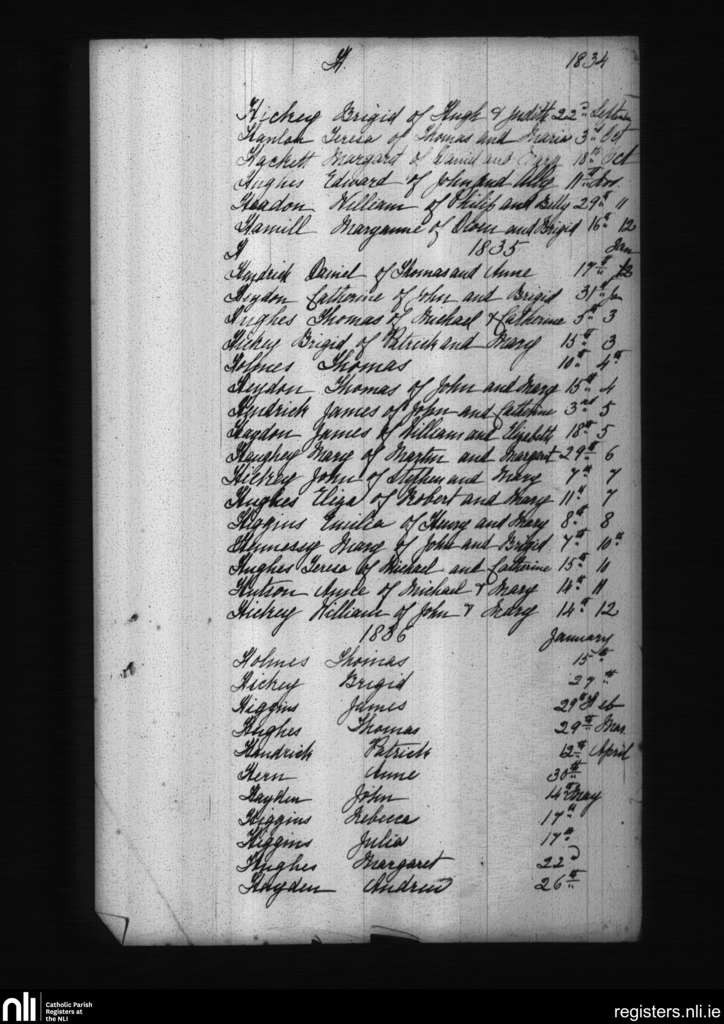 H. 1834
Hickey Brigid of Hugh & Judith 22nd Septem
Hanlon Teresa of Thomas and Maria 3rd Oct
Hackett Margaret of Daniel and Mary 18th Oct
Hughes Edward of John and Ally 11th Nov.
Headon William of Philip and Betty 29th 11
Hamill Maryanne of Owen and Brigid 16th 12
H 1835 Jan
Hendrick Daniel of Thomas and Anne 17th
Heydon Catherine of John and Brigid 31st Jan
Hughes Thomas of Michael & Catherine 5th 3
Hickey Brigid of Patrick and Mary 15th 3
Holmes Thomas 10th 4th
Heydon Thomas of John and Mary 15th 4
Hendrick James of John and Catherine 3rd 5
Haydon James of William and Elizabeth 18th 5
Haughey Mary of Martin and Margaret 29th 6
Hickey John of Stephen and Mary 7th 7
Hughes Eliza of Robert and Mary 11th 7
Higgins Emilia of Henry and Mary 8th 8
Hennessy Mary of John and Brigid 7th 10th
Hughes Teresa of Michael and Catherine 15th 11
Hutson Anne of Michael & Mary 14th 11
Hickey William of John & Mary 14th 12
1836 January
Holmes Thomas 15th
Hickey Brigid 27th
Higgins James 29th Feb
Hughes Thomas 29th Mar.
Handrick Patrick 12th April
Hern Anne 30th
Hayden John 14th May
Higgins Rebecca 17th
Higgins Julia 17th
Hughes Margaret 22d
Hayden Andrew 26th
nli Catholic Parish
Registers at
the NLI
registers.nli.ie